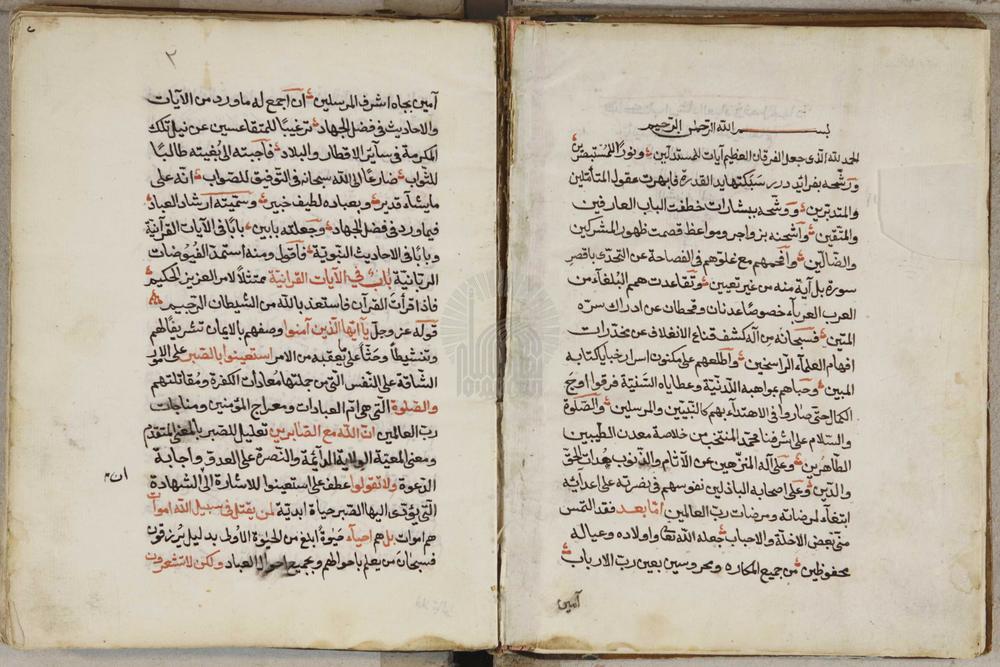 بسم الله الرحمن الرحيم
الحمد لله الذى جعل الفرقان العظيم آيات للمستدلين ونورا للمستبصرين
ورشحه بفرائد درر سبكتها يد القدرة فابهرت عقول المتأملين
والمتدبرين ووشحه ببشارات خطفت الباب العارفين
والمتقين واشحنه بزواجر ومواعظ قصمت ظهور المشركين
والضالين وافحمهم مع غلوهم فى الفصاحة عن التحدى باقصر
سورة بل آية منه من غير تعيين وتقاعدت همم البلغاء من
العرب العرباء خصوصا عدنان وقحطان عن ادراك سره
المتين فسبحانه من اله كشف قناع الانغلاف عن مخدرات
افهام العلماء الراسخين واطلعهم على مكنون اسرار خبايا كتابه
المبين وحباهم بمواهبه اللدنية وعطاياه السنية فرقوا اوج
الكمال حتى صاروا فى الاهتداء بهم كالنبيين والمرسلين والصلوة
والسلام على اشرفنا محمد المنتخب من خلاصة معدن الطيبين
الطاهرين وعلى آله المنزهين عن الآثام والذنوب بعدات الحق
والدين وعلى اصحابه الباذلين نفوسهم فى نصرته على اعدائه
ابتغاء لمرضاته ومرضات رب العالمين اما بعد فقد التمس
منى بعض الاخلة والاحباب جعله الله تعا واولاده وعياله
محفوظين من جميع المكاره ومحروسين بعين رب الارباب
آمين
٢
آمين بجاه اشرف المرسلين ان اجمع له ما ورد من الآيات
والاحاديث فى فضل الجهاد ترغيبا للمتقاعسين عن نيل تلك
المكرمة فى سائر الاقطار والبلاد فاجبته الى بغيته طالبا
للثواب ضارعا الى الله سبحانه فى التوفيق للصواب انه على
ما يشاء قدير وبعباده لطيف خبير وسميته ارشاد العباد
فيما ورد فى فضل الجهاد وجعلته بابين بابا فى الآيات القرآنية
وبابا فى الاحاديث النبوية فاقول ومنه استمد الفيوضات
الربانية باب فى الآيات القرانية ممتثلا لامر العزيز الحكيم
فاذا قرأت القرآن فاستعذ بالله من الشيطان الرجيم
قوله عز وجل يا ايها الذين آمنوا وصفهم بالايمان تشريفا لهم
وتنشيطا وحثا على ما يعقبه من الامر استعينوا بالصبر على الامور
الشاقة على النفس التى من جملتها معادات الكفرة ومقاتلتهم
والصلوة التى هى ام العبادات ومعراج المؤمنين ومناجات
رب العالمين ان الله مع الصابرين تعليل للصبر بالمعنى المتقدم
ومعنى المعية الولاية الدائمة والنصرة على العدو واجابة
الدعوة ولا تقولوا عطف على استعينوا للاشارة الى ان الشهادة
التى يؤدى اليها الصبر حياة ابدية لمن يقتل فى سبيل الله اموات
هم اموات بل هم احياء حيوة ابلغ من الحيوة الاولى بدليل يرزقون
فسبحان من يعلم باحوالهم وبجميع احوال العباد ولكن لا تشعرون